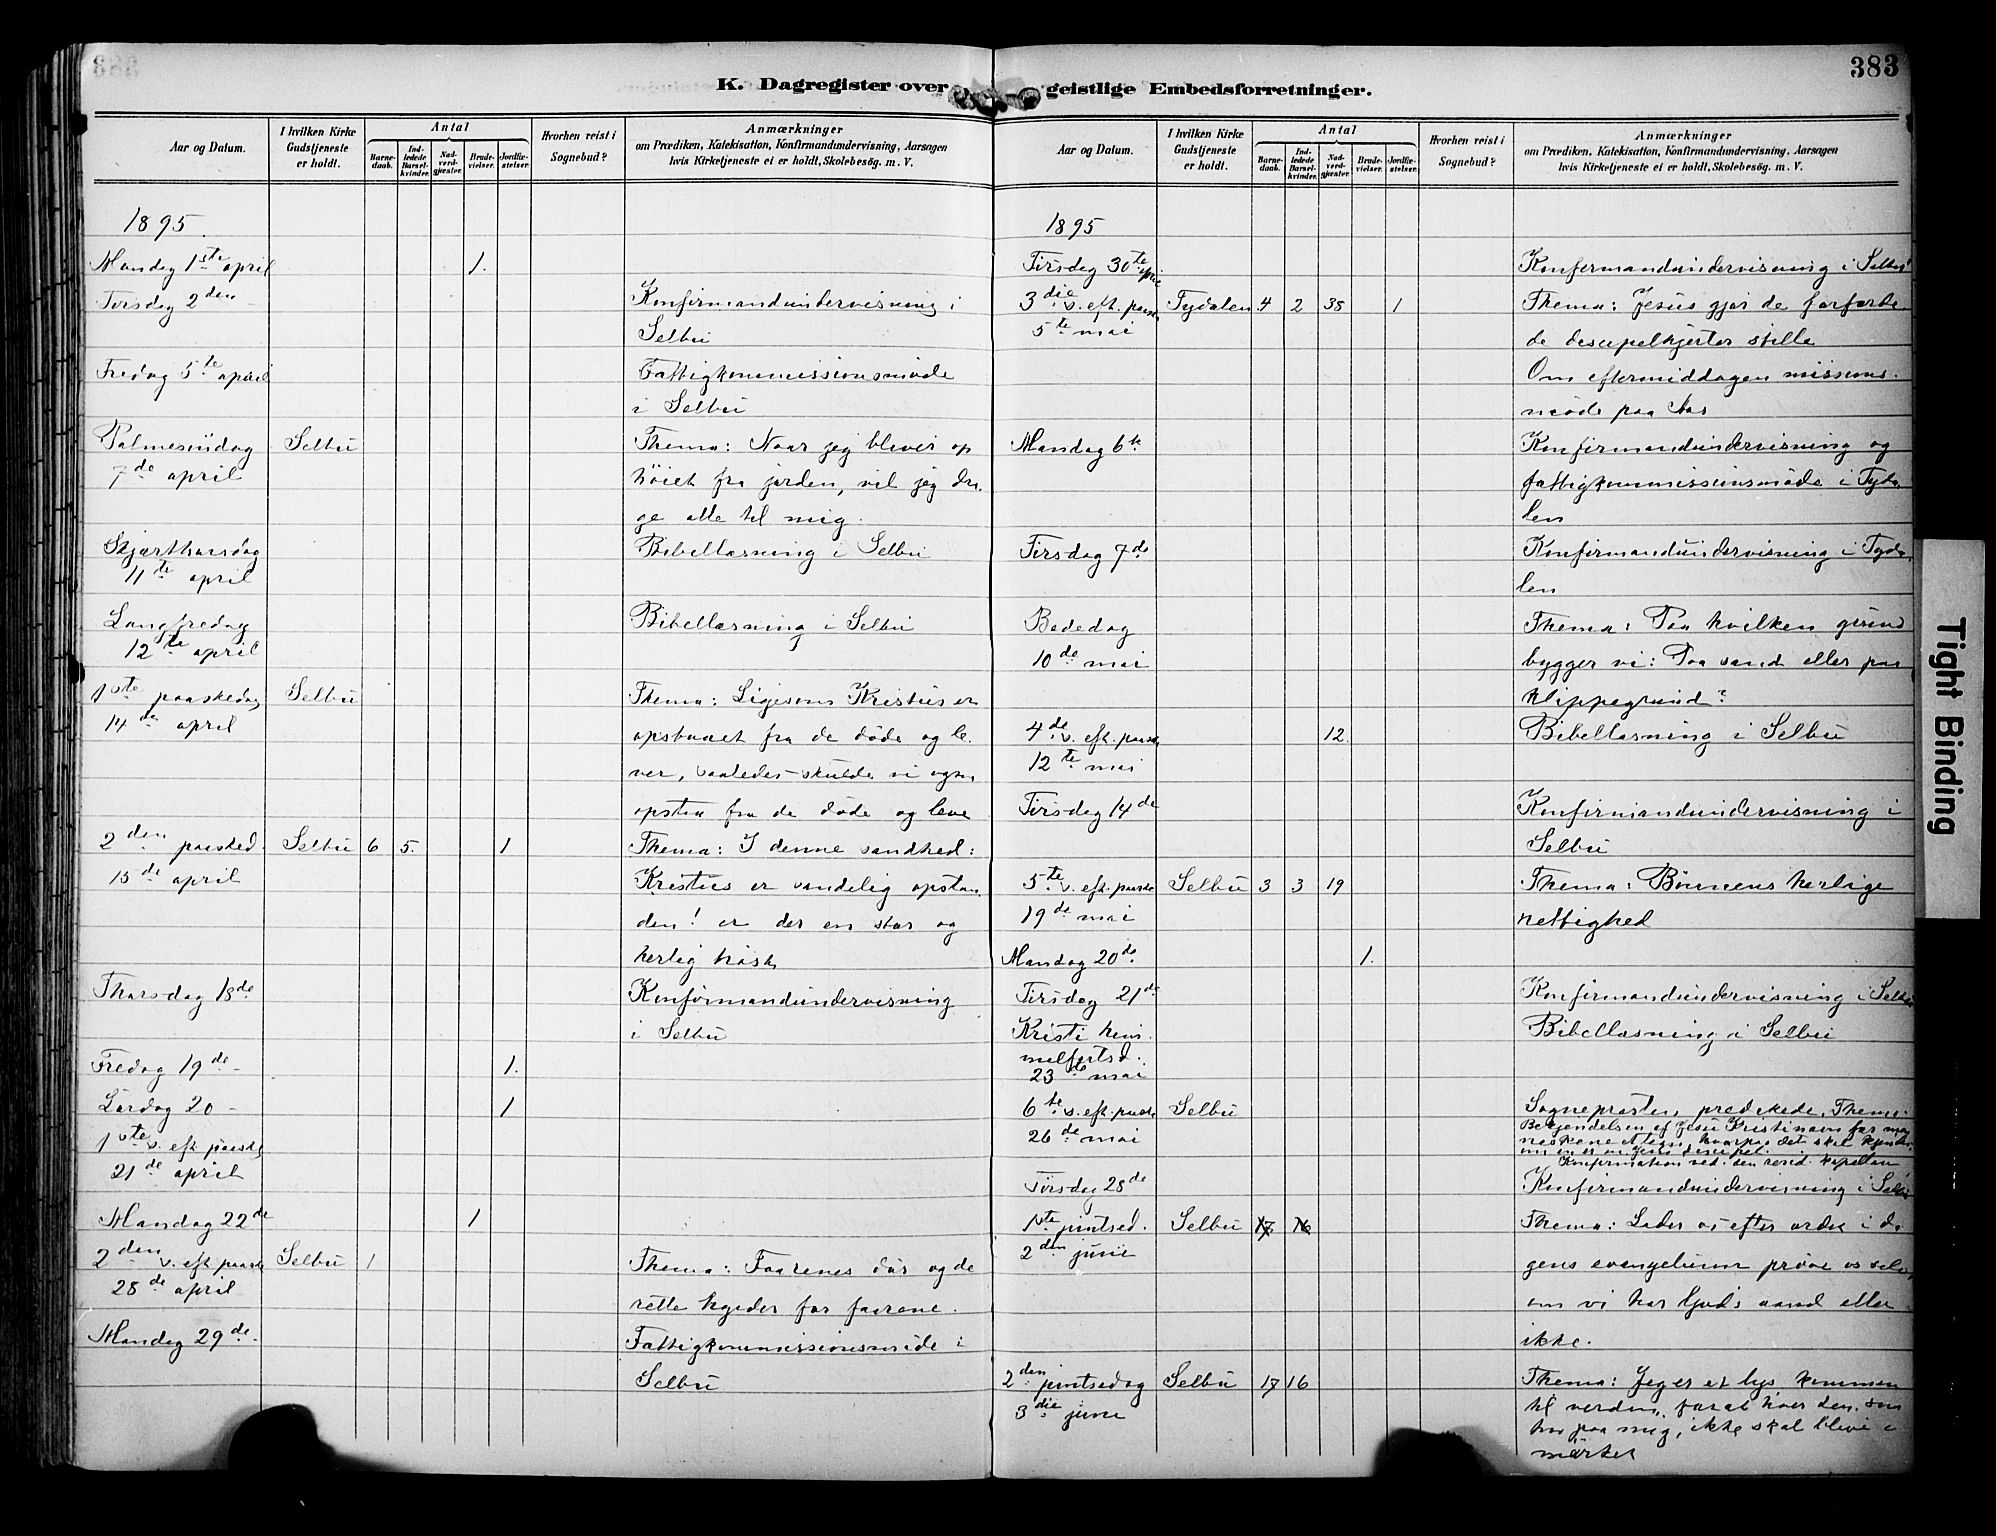 383
K. Dagregister over geistlige Embedsforretninger.
Aar og Datum.
I hvilken Kirke Gudstjeneste er holdt.
Antal
Barnedaab.
Indledede Barselkvinder.
Nadverdgjæster.
Brudevielser.
Jordfæstelser.
Hvorhen reist i Sognebud?
Anmærkninger
om Prædiken, Katekisation, Konfirmandundervisning, Aarsagen
hvis Kirketjeneste ei er holdt, Skolebesøg. m. V.
1895.
Mandag 1ste april 1.
Tirsdag 2den Konfirmandundervisning i
Selbu
Fredag 5te april Fattigkommissionsmøde
i Selbu
Palmesøndag Selbu Thema: Naar jeg bliver op
7de april høiet fra jorden, vil jeg dra-
ge alle til mig.
Skjærthorsdag Bibellæsning i Selbu
11te april
Langfredag Bibellæsning i Selbu
12te april
1ste paaskedag Selbu Thema: Ligesom Kristus er
14de april opstanet fra de døde og le-
ver, saaledes skulde vi ogsaa
opstaa fra de døde og leve
2den paasked. Selbu 6 5. 1 Thema: I denne sandhed:
15de april Kristus er sandelig opstan-
den! er der en stor og
herlig trøst
Thorsdag 18de Konfirmandundervisning
i Selbu
Fredag 19de 1.
Lørdag 20 1
1ste s. eft paaske
21de april
Mandag 22de 1
2den s. eft paaske Selbu 1 Thema: Faarenes dør og de
28de april rette hyrder for faarene.
Mandag 29de Fattigkommissionsmøde i
Selbu
Aar og Datum.
I hvilken Kirke Gudstjeneste er holdt.
Antal
Barnedaab.
Indledede Barselkvinder.
Nadverdgjæster.
Brudevielser.
Jordfæstelser.
Hvorhen reist i Sognebud?
Anmærkninger
om Prædiken, Katekisation, Konfirmandundervisning, Aarsagen
hvis Kirketjeneste ei er holdt, Skolebesøg. m. V.
1895
Tirsdag 30te april Konfirmandundervisning i Selbu
3die s. eft. paaske Tydalen 4 2 38 1 Thema: Jesus gjør de forfærde-
5te mai de discipelhjerter stille
Om eftermiddagen missions-
møde paa Aas
Mandag 6te Konfirmandundervisning og
fattigkommissionsmøde i Tyda-
len
Tirsdag 7de Konfirmandundervisning i Tyda-
len
Bededag Thema: Paa hvilken grund
10de mai bygger vi: Paa sand eller paa
klippegrund?
4de s. eft. paaske 12. Bibellæsning i Selbu
12te mai
Tirsdag 14de Konfirmandundervisning i
Selbu
5te s. eft. paaske Selbu 3 3 19 Thema: Bønnens herlige
19de mai rettighed
Mandag 20de 1.
Tirsdag 21de Konfirmandundervisning i Selbu
Kristi him- Bibellæsning i Selbu
melfartsd.
23de mai
6te s. eft. paaske Selbu Sognepresten prædikede. Thema:
26de mai Bekjendelsen af Jesu Kristi navn for men-
neskene et tegn, hvorpaa det skal kjendes
om en er en Jesu discipel.
Konfirmation ved den resid. kapellan
Tirsdag 28de Konfirmandundervisning i Selbu
1ste pintsed. Selbu 17 16 Thema: Lader os efter ordet i da-
2den juni gens evangelium prøve os selv,
om vi har Guds aand eller
ikke.
2den pintsedag Selbu 17 16 Thema: Jeg er et lys kommen
3die juni til verden, forat hver den, som
tror paa mig, ikke skal blive i
mørket
Tight Binding